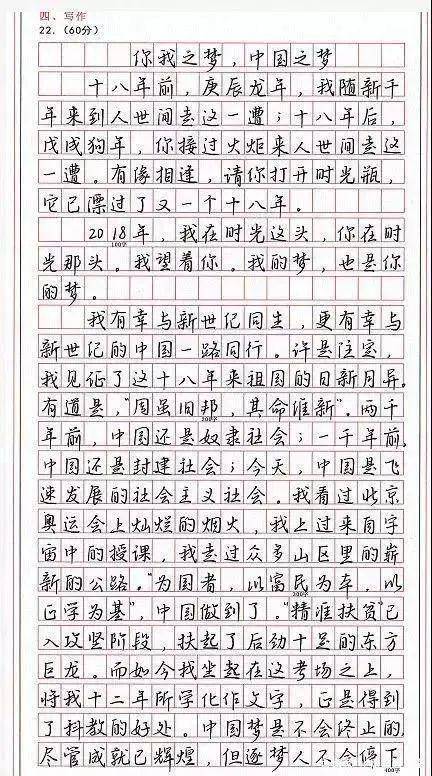 四、写作
22.（60分）
你我之梦，中国之梦
十八年前，庚辰龙年，我随新千
年来到人世间走这一遭；十八年后，
戊戌狗年，你接过火炬来人世间走这
一遭。有缘相逢，请你打开时光瓶，
它已漂过了又一个十八年。
2018年，我在时光这头，你在时
100字
光那头。我望着你。我的梦，也是你
的梦。
我有幸与新世纪同生，更有幸与
新世纪的中国一路同行。许是注定，
我见证了这十八年来祖国的日新月异。
有道是，“周虽旧邦，其命维新”。两千
200字
年前，中国还是奴隶社会；一千年前，
中国还是封建社会；今天，中国是飞
速发展的社会主义社会。我看过北京
奥运会上灿烂的烟火，我上过来自宇
宙中的授课，我走过众多山区里的崭
新的公路。“为国者，以富民为车，以
正学为基”，中国做到了。“精准扶贫”已
300字
入攻坚阶段，扶起了后劲十足的东方
巨龙。而如今我坐起在这考场之上，
将我十二年所学化作文字，正是得到
了科教的好处。中国梦是不会终止的，
尽管成就已辉煌，但逐梦人不会停下
400字